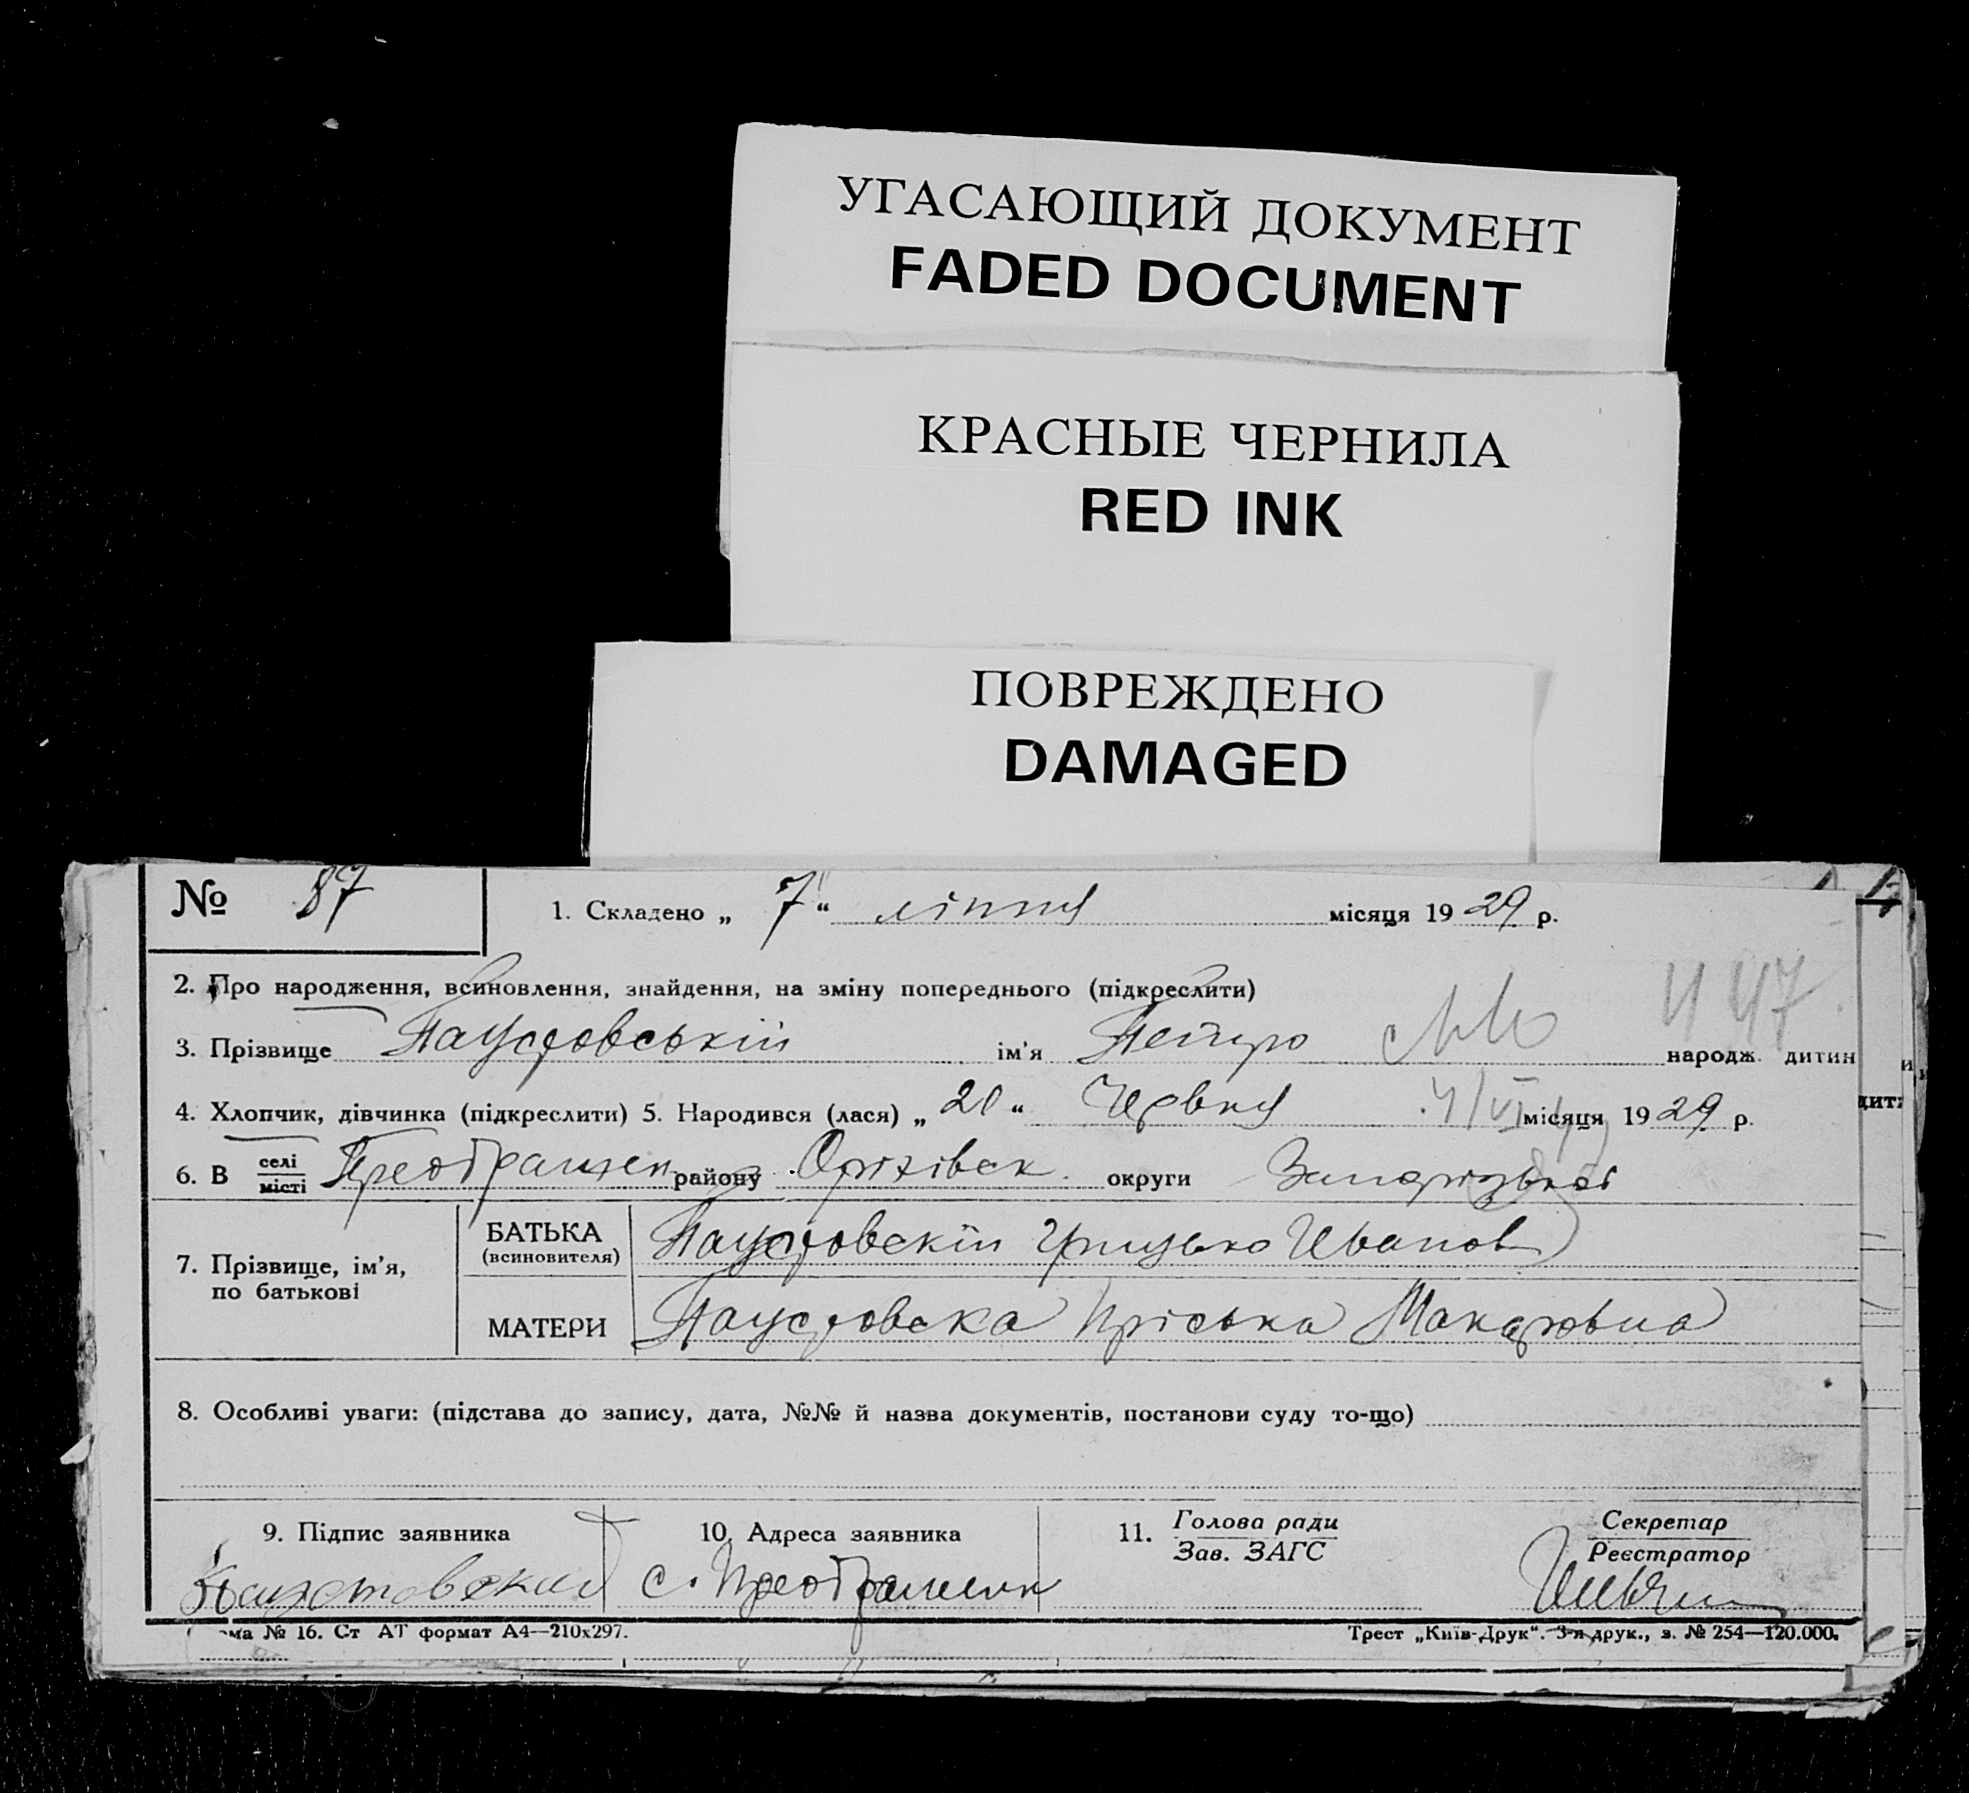 УГАСАЮЩИЙ ДОКУМЕНТ
FADED DOCUMENT
КРАСНЫЕ ЧЕРНИЛА
RED INK
ПОВРЕЖДЕНО
DAMAGED
№ 87
1. Складено „ 7 “ ліпня місяця 1929 р.
2. Про народження, всиновлення, знайдення, на зміну попереднього (підкреслити)
447
3. Прізвище Паустовській ім'я Петро народж. дитин
4. Хлопчик, дівчинка (підкреслити) 5. Народився (лася) „ 20 “ Червня місяця 1929 р.
6. В селі місті Преображен району Оріхівск округи Запорізької
7. Прізвище, ім'я, по батькові
БАТЬКА (всиновителя) Паустовскій Грицько Иванов
МАТЕРИ Паустовска Пріська Макаровна
8. Особливі уваги: (підстава до запису, дата, №№ й назва документів, постанови суду то-що)
9. Підпис заявника 10. Адреса заявника 11. Голова ради Зав. ЗАГС Секретар Реєстратор
Паустовский с. Преображенк
ма № 16. Ст АТ формат А4—210x297. Трест „Київ-Друк“. 3-я друк., з. № 254—120.000.